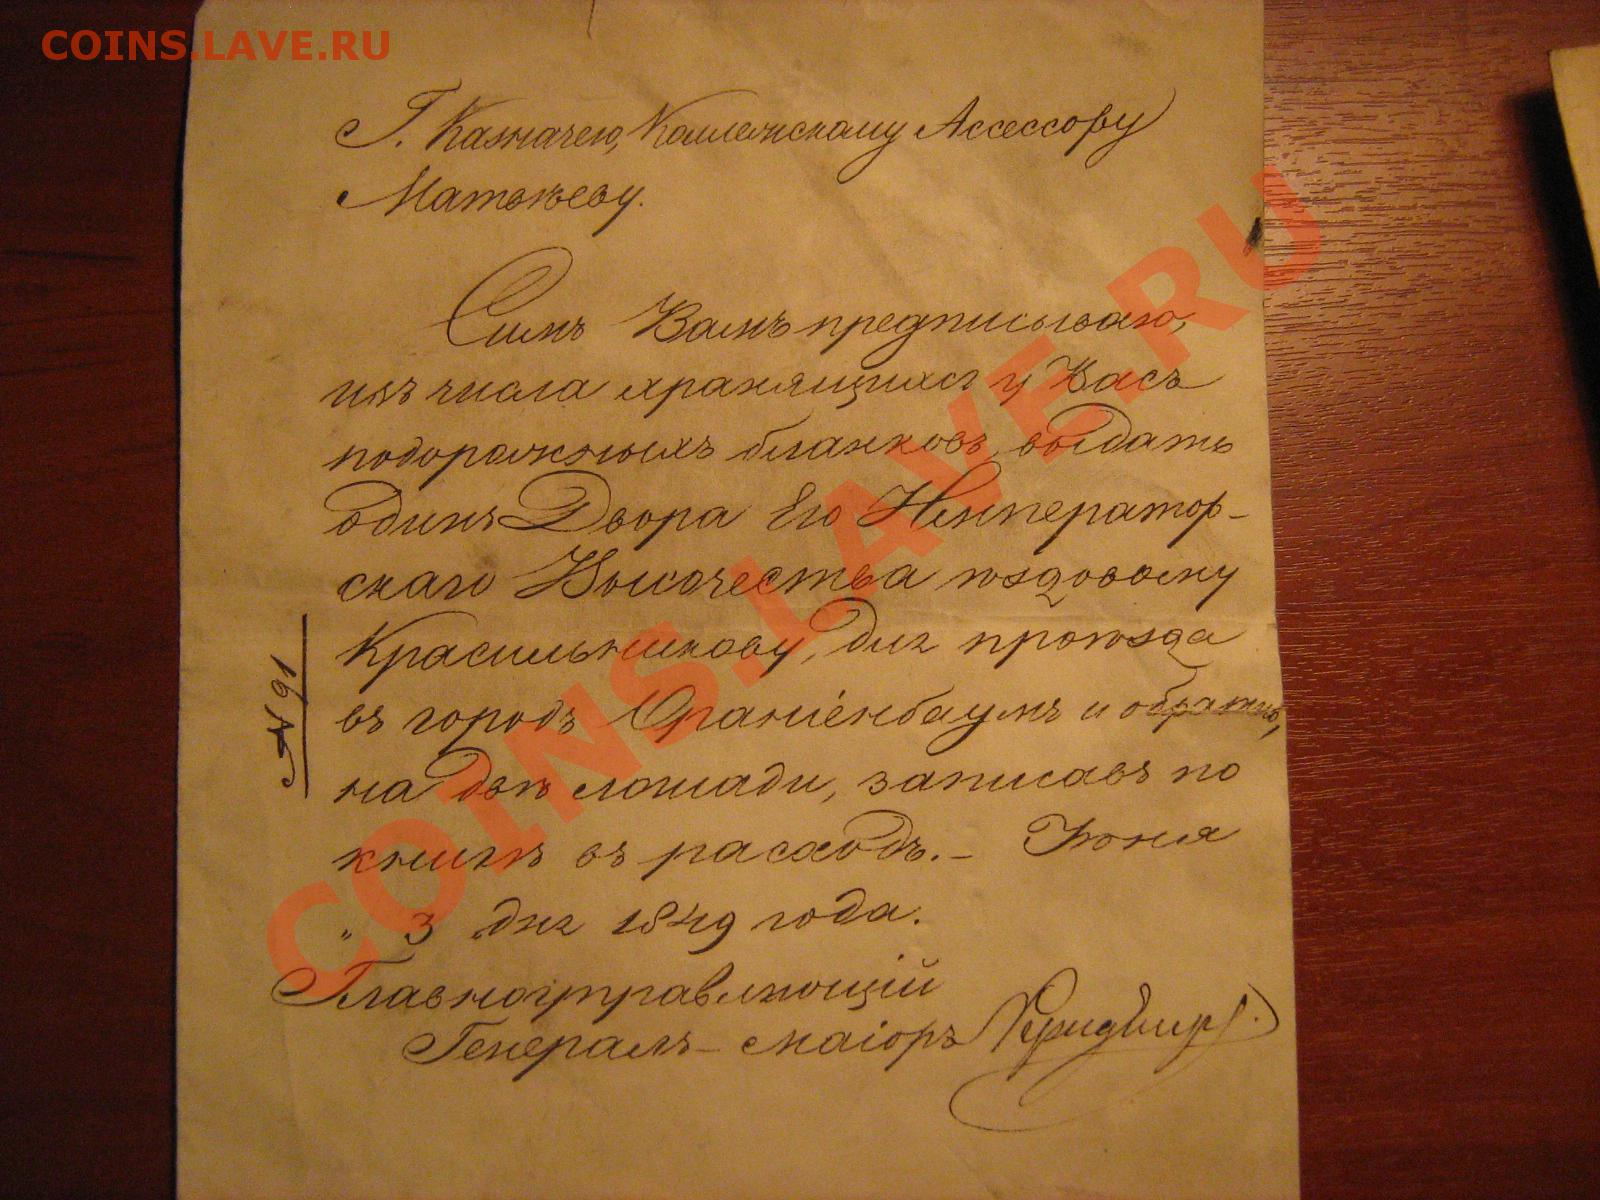 COINS.LAVE.RU
Г. Казначею, Коллежскому Ассессору
Матвѣеву.
Симъ Вамъ предписываю,
изъ числа хранящихся у Васъ
подорожныхъ бланковъ, выдать
одинъ Двора Его Император-
скаго Высочества ѣздовому
Красильникову, для проѣзда
въ городъ Ораніенбаумъ и обратно,
на двѣ лошади, записавъ по
книгѣ въ расходъ. – Іюня
" 3 дня 1849 года.
Главноуправляющій
Генералъ-маіоръ
№ 91
COINS.LAVE.RU